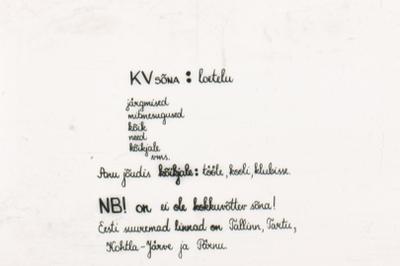 KV sõna : loetelu
järgmised
mitmesugused
kõik
need
kõikjale
vms.
Anu jõudis kõikjale : tööle, kooli, klubisse.
NB! on ei ole kokkuvõttev sõna!
Eesti suuremad linnad on Tallinn, Tartu,
Kohtla-Järve ja Pärnu.